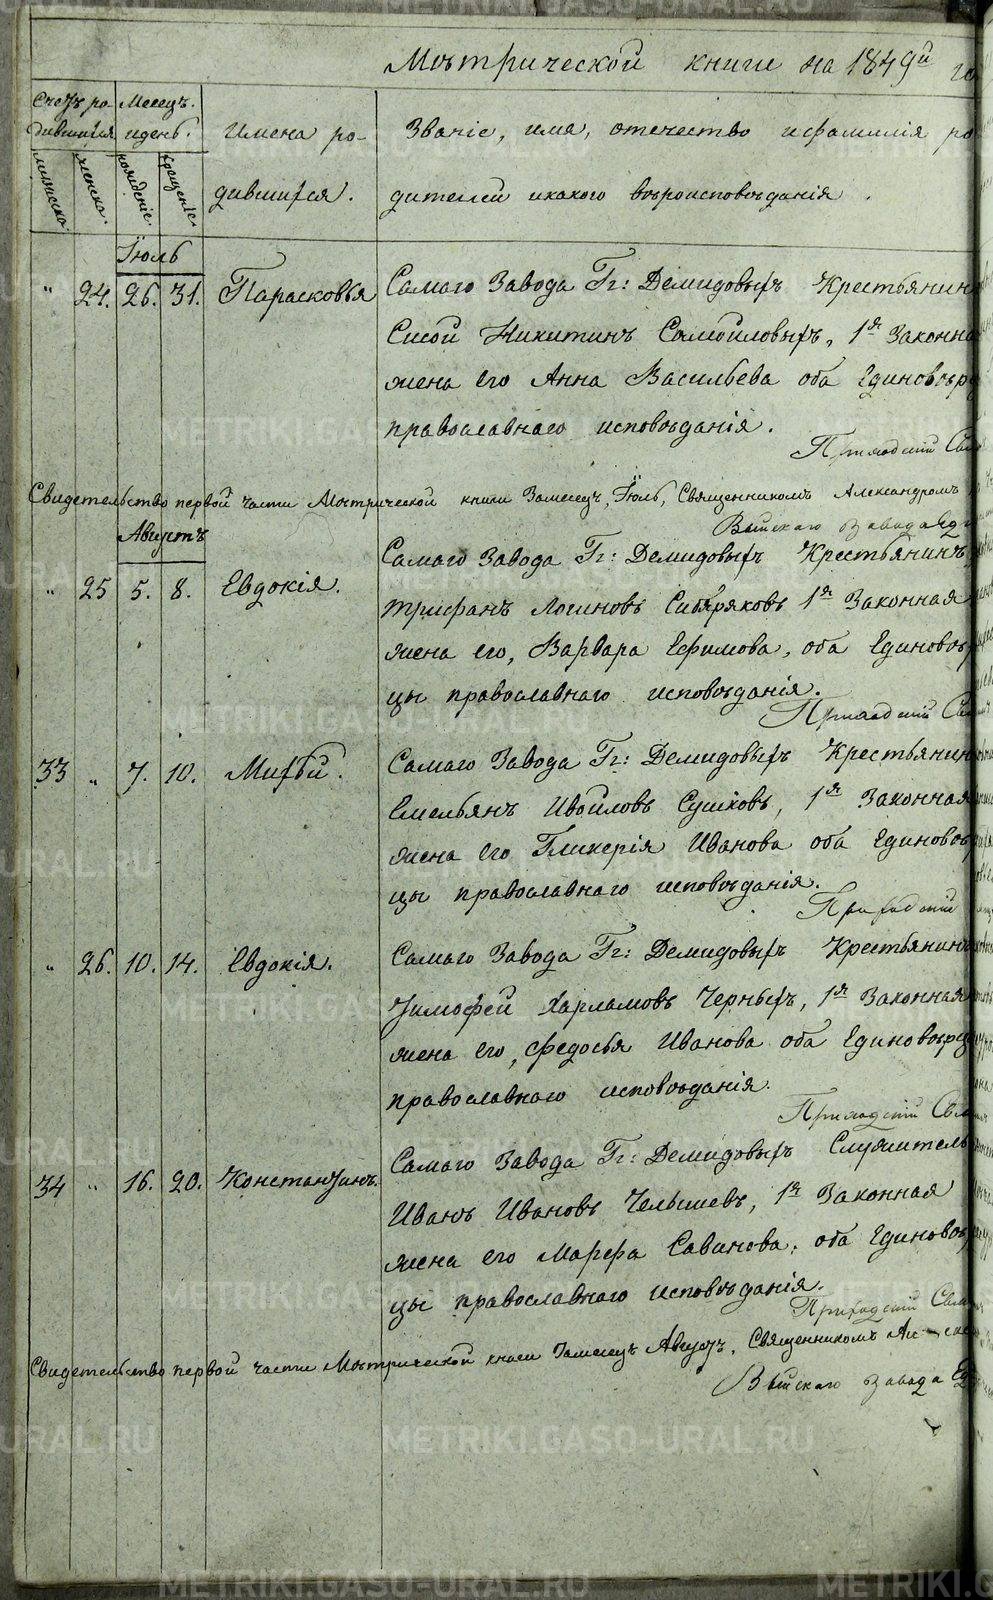 Метрической книги на 1849й го
Счетъ ро- Месецъ.
дившихся идень. Имена ро- Званіе, имя, отечество ифамилія ро
мужеска женска. рожденіе. крещеніе. дившихся. дителей икакого вѣроисповѣданія.
Іюль
" 24. 26. 31. Парасковья Самаго Завода Гг: Демидовыхъ Крестьянин
Сисой Никитинъ Самойловыхъ, 1я Законна
жена его Анна Васильева оба Единовѣр
православнаго исповѣданія.
Приходскій Свя
Свидетельство первой части Метрической книги Замесецъ, Іюль, Священникомъ Александромъ
Выйскаго завода Ед
Августъ
Самаго Завода Гг: Демидовыхъ Крестьянинъ
" 25 5. 8. Евдокія. Трифанъ Логиновъ Сибиряковъ 1я Законная
жена его, Варвара Ефимова, оба Единовѣр
цы православнаго исповѣданія.
Приходскій Свя
33 " 7. 10. Михѣй. Самаго Завода Гг: Демидовыхъ Крестьянин
Емельянъ Ивойловъ Сушковъ, 1я Законная
жена его Гликерія Иванова оба Единовѣр
цы православнаго исповѣданія.
Приходскій
" 26. 10. 14. Евдокія. Самаго Завода Гг: Демидовыхъ Крестьянинъ
Тимофей Харламовъ Черныхъ, 1я Законная
жена его, Федосья Иванова оба Единовѣрц
православнаго исповѣданія.
Приходскій Свя
34 " 16. 20. Константинъ. Самаго Завода Гг: Демидовыхъ Служитель
Иванъ Ивановъ Челышевъ, 1я Законная
жена его Марфа Савинова, оба Единовѣр
цы православнаго исповѣданія.
Приходскій Свя
Свидетельство первой части Метрической книги Замесецъ Августъ, Священникомъ Але
Выйскаго завода Ед
METRIKI.GASO-URAL.RU